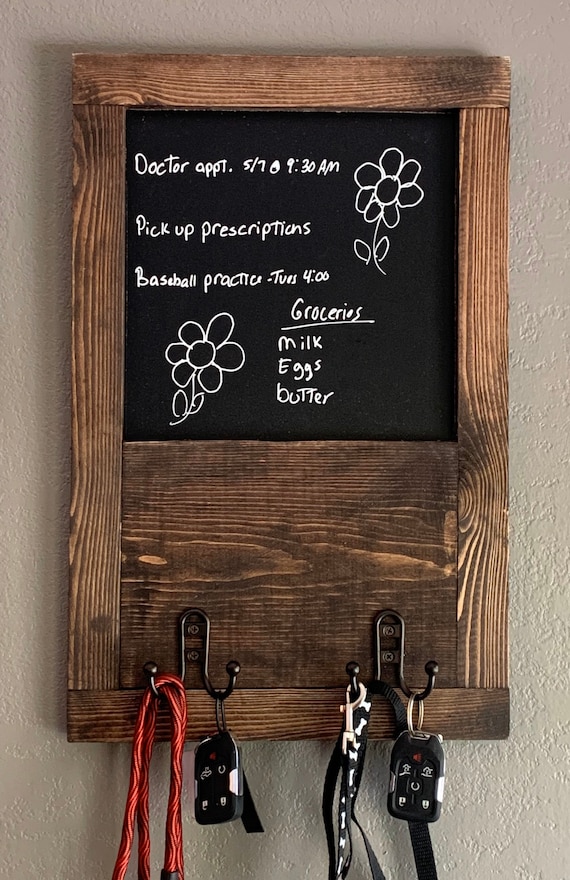 Doctor appt. 5/7 @ 9:30 AM
Pick up prescriptions
Baseball practice - Tues 4:00
Groceries
milk
Eggs
butter